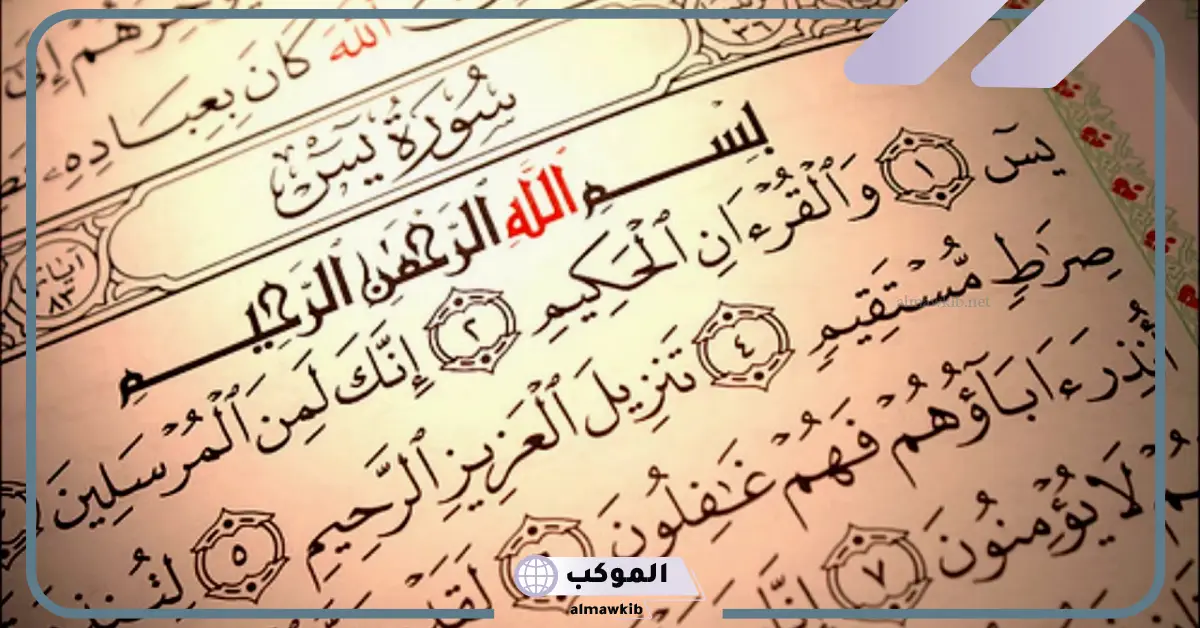 هُمْ إِلَىٰ
ٱللَّهَ كَانَ بِعِبَادِهِۦ
٣٦
سُورَةُ يسٓ
ءَايَاتُهَا ٨٣
بِسْمِ ٱللَّهِ ٱلرَّحْمَٰنِ ٱلرَّحِيمِ
يسٓ ١ وَٱلْقُرْءَانِ ٱلْحَكِيمِ ٢ إِنَّكَ لَمِنَ ٱلْمُرْسَلِينَ
صِرَٰطٍ مُّسْتَقِيمٍ ٤ تَنزِيلَ ٱلْعَزِيزِ ٱلرَّحِيمِ ٥
أُنذِرَ ءَابَآؤُهُمْ فَهُمْ غَٰفِلُونَ
لَا يُؤْمِنُونَ ٧ إِنَّا
almawkib.net
الموكب
almawkib